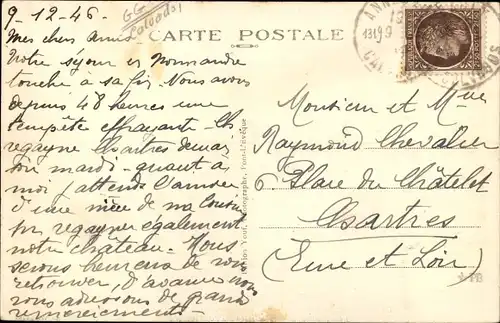 9-12-46
GG
Calvados
CARTE POSTALE
ANN
1319 9
Mes chers Amis
Notre séjour en Normandie
touche à sa fin. Nous avons
depuis 48 heures une
tempête effrayante. Ch.
regagne Chartres demain
soir mardi - quant à
moi j'attends l'arrivée
d'une nièce de ma cousine
pr regagner également
notre château. Nous
serons heureux de vous
retrouver, d'avance nous
vous adressons de grands
remerciements.
Photographe, Pont-l'Évêque
Monsieur et Mme
Raymond Chevalier
6 Place du Châtelet
Chartres
(Eure et Loir)